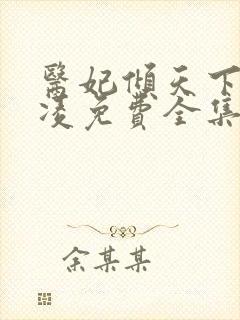 醫妃傾天下
凌免費全集
余某某